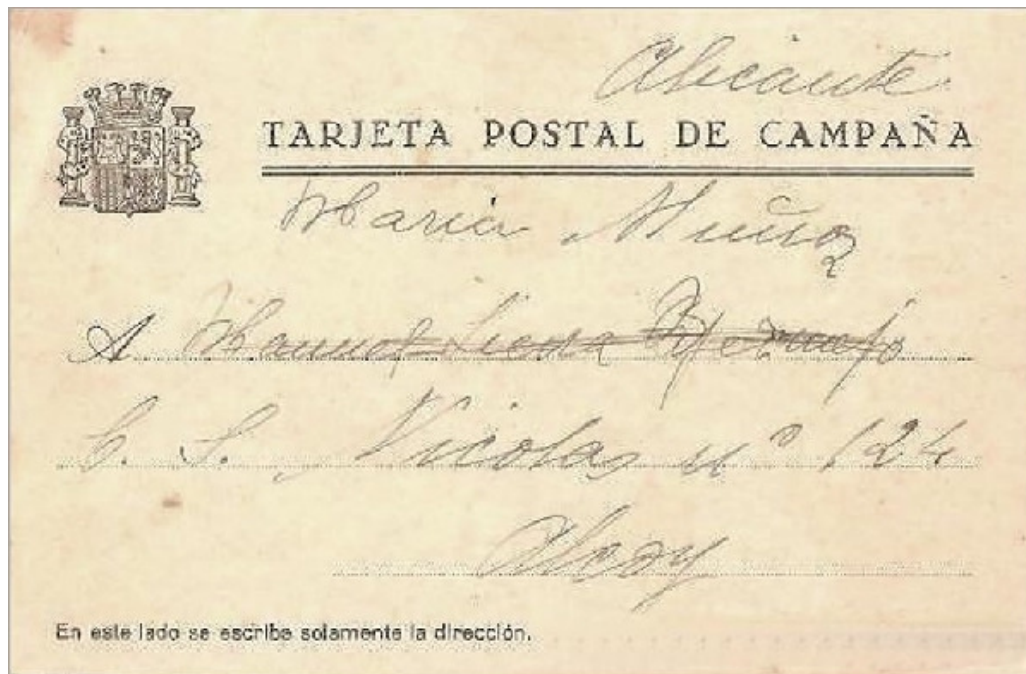 Alicante
TARJETA POSTAL DE CAMPAÑA
Maria Muñoz
A
C. S. Nicolas nº 124
Alcoy
En este lado se escribe solamente la dirección.